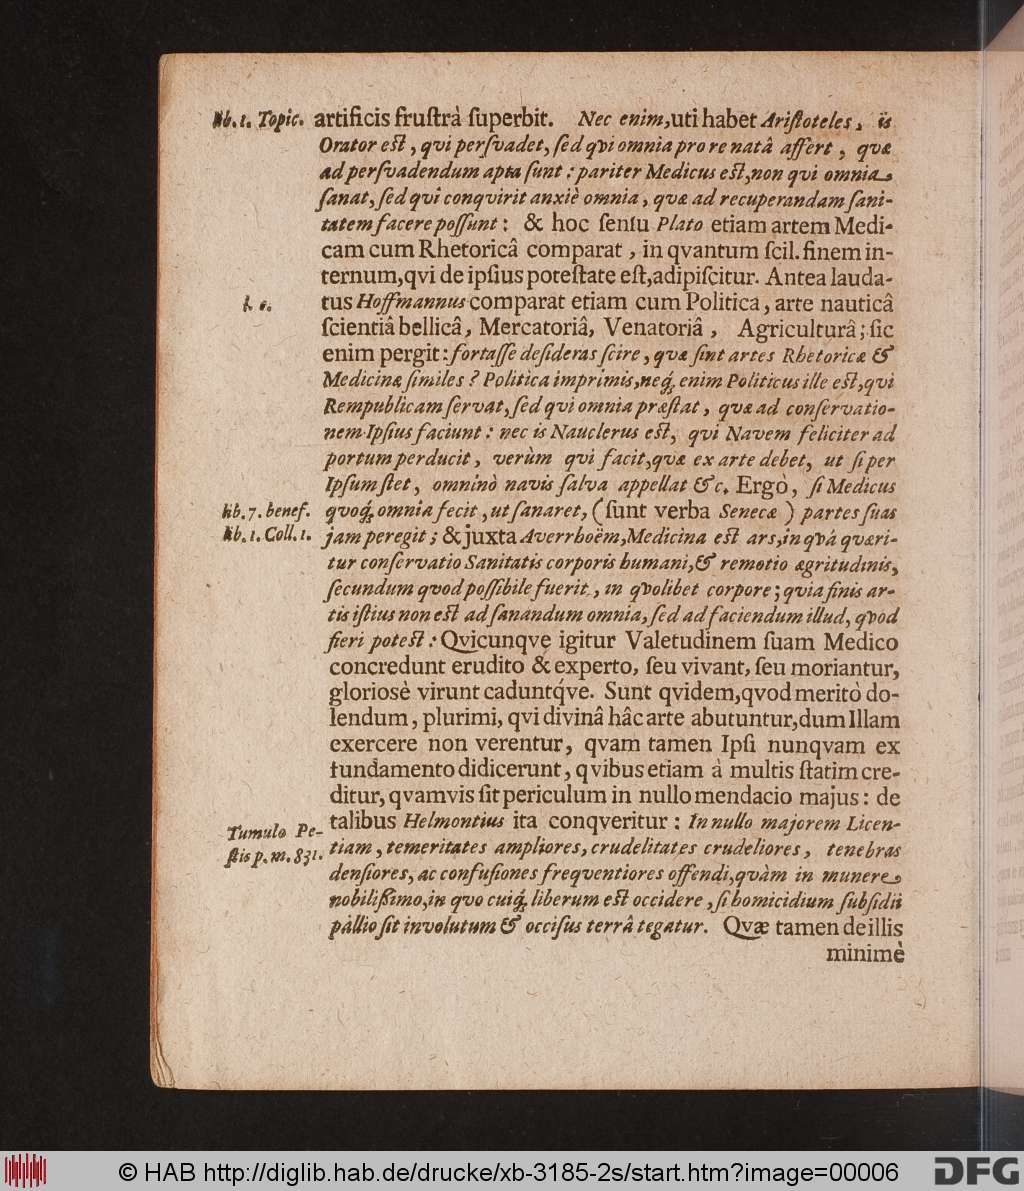 lib. 1. Topic. artificis fruſtrà ſuperbit. Nec enim, uti habet Ariſtoteles, is
Orator eſt, qvi perſvadet, ſed qvi omnia pro re natâ affert, qvæ
ad perſvadendum apta ſunt: pariter Medicus eſt, non qvi omnia
ſanat, ſed qvi conqvirit anxiè omnia, qvæ ad recuperandam ſani-
tatem facere poſſunt: & hoc ſenſu Plato etiam artem Medi-
cam cum Rhetoricâ comparat, in qvantum ſcil. finem in-
ternum, qvi de ipſius poteſtate eſt, adipiſcitur. Antea lauda-
tus Hoffmannus comparat etiam cum Politica, arte nauticâ
ſcientiâ bellicâ, Mercatoriâ, Venatoriâ, Agriculturâ; ſic
enim pergit: fortaſſe deſideras ſcire, qvæ ſint artes Rhetoricæ &
Medicinæ ſimiles? Politica imprimis, neq́; enim Politicus ille eſt, qvi
Rempublicam ſervat, ſed qvi omnia præſtat, qvæ ad conſervatio-
nem Ipſius faciunt: nec is Nauclerus eſt, qvi Navem feliciter ad
portum perducit, verùm qvi facit, qvæ ex arte debet, ut ſi per
Ipſum ſtet, omninò navis ſalva appellat &c. Ergò, ſi Medicus
lib. 7. benef. qvoq́; omnia fecit, ut ſanaret, (ſunt verba Senecæ) partes ſuas
lib. 1. Coll. 1. jam peregit; & juxta Averrhoëm, Medicina eſt ars, in qvâ qværi-
tur conſervatio Sanitatis corporis humani, & remotio ægritudinis,
ſecundum qvod poſſibile fuerit, in qvolibet corpore; qvia finis ar-
tis iſtius non eſt ad ſanandum omnia, ſed ad faciendum illud, qvod
fieri poteſt: Qvicunqve igitur Valetudinem ſuam Medico
concredunt erudito & experto, ſeu vivant, ſeu moriantur,
glorioſè virunt caduntq́ve. Sunt qvidem, qvod meritò do-
lendum, plurimi, qvi divinâ hâc arte abutuntur, dum Illam
exercere non verentur, qvam tamen Ipſi nunqvam ex
fundamento didicerunt, qvibus etiam à multis ſtatim cre-
ditur, qvamvis ſit periculum in nullo mendacio majus: de
Tumulo Pe- talibus Helmontius ita conqveritur: In nullo majorem Licen-
ſtis p. m. 831. tiam, temeritates ampliores, crudelitates crudeliores, tenebras
denſiores, ac confuſiones freqventiores offendi, qvàm in munere
nobiliſſimo, in qvo cuiq́; liberum eſt occidere, ſi homicidium ſubſidii
pallio ſit involutum & occiſus terrâ tegatur. Qvæ tamen de illis
minimè
© HAB http://diglib.hab.de/drucke/xb-3185-2s/start.htm?image=00006
DFG